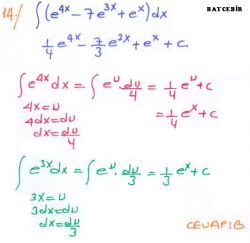 14./ ∫(e^4x - 7e^3x + e^x)dx BATCEBİR
1/4 e^4x - 7/3 e^2x + e^x + c
∫e^4x dx = ∫e^u . du/4 = 1/4 e^u + c
4x = u
4dx = du
dx = du/4
= 1/4 e^x + c
∫e^3x dx = ∫e^u . du/3 = 1/3 e^x + c
3x = u
3dx = du
dx = du/3
CEVAP:B